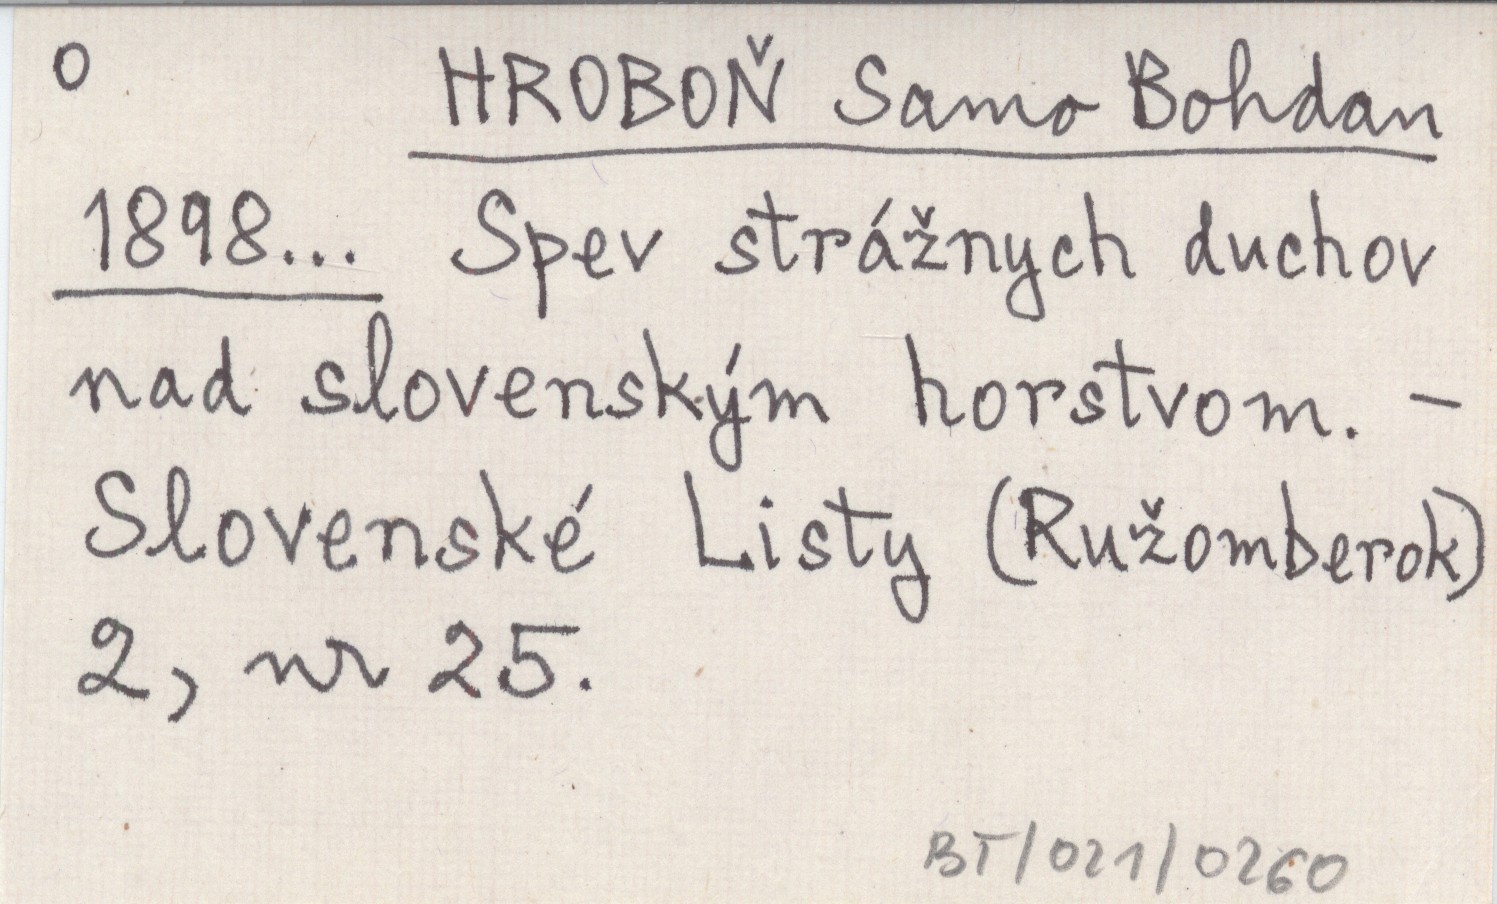 o HROBOŇ Samo Bohdan
1898... Spev strážnych duchov
nad slovenským horstvom. -
Slovenské Listy (Ružomberok)
2, nr 25.
BT/021/0260